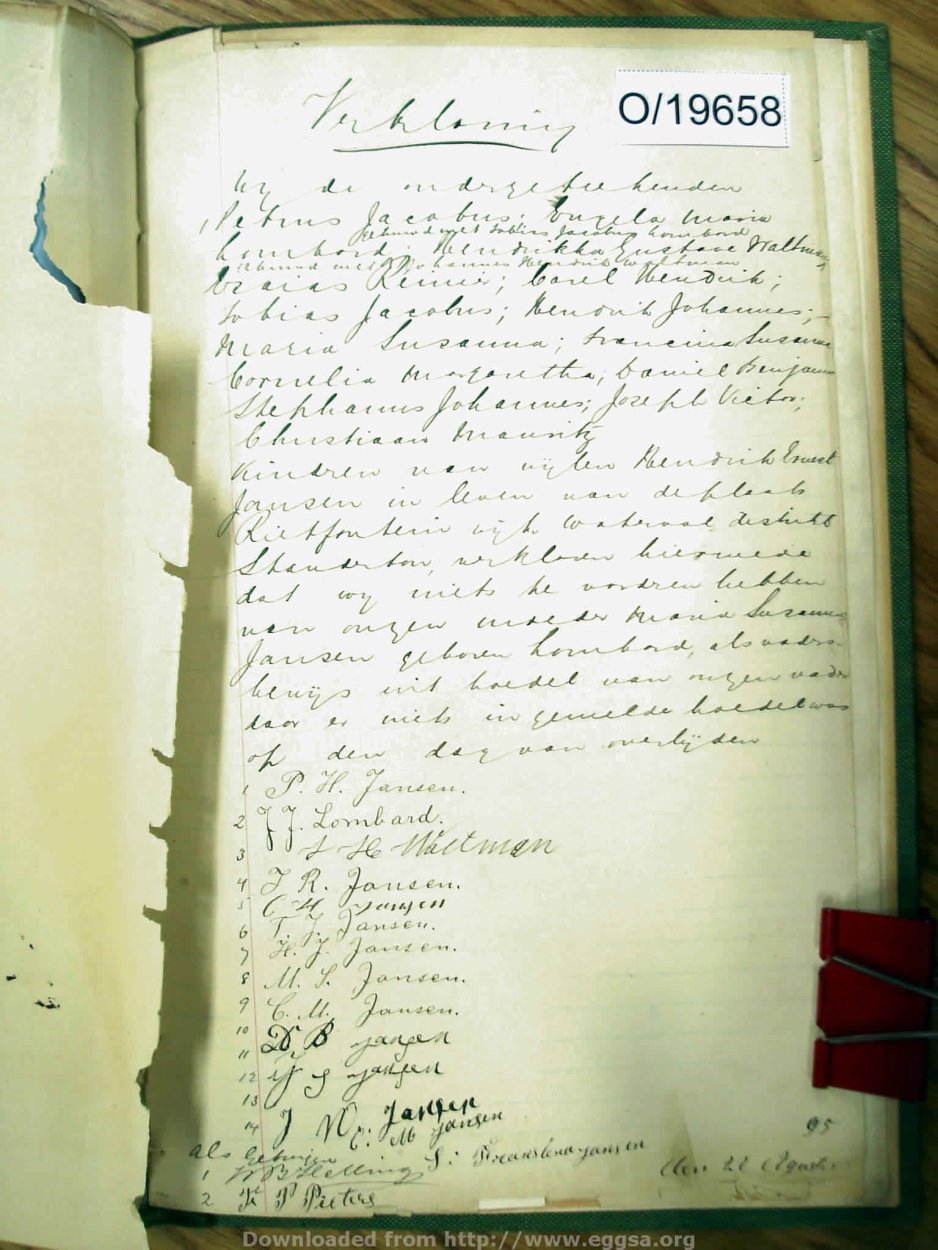 Verklaring
O/19658
Wy de ondergeteekenden
Petrus Jacobus; Engela Maria
gehuwd met Tobias Jacobus Lombard
Lombard; Hendrikka Gustave Waltman
gehuwd met Johannes Hendrik Waltman
Izaias Reinier; Carel Hendrik;
Tobias Jacobus; Hendrik Johannes;
Maria Susanna; Francina Susanna
Cornelia Margaretha; Daniel Benjamin
Stephanus Johannes; Joseph Victor;
Christiaan Mauritz
Kinderen van wijlen Hendrik Ernest
Jansen in leven van de plaats
Rietfontein wijk Waterval destrikt
Standerton, verklaren hiermede
dat wy niets te vorderen hebben
van onzen moeder Maria Susanna
Jansen geboren Lombard, als vaders-
bewijs uit boedel van onzen vader
daar er niets in gemelde boedel was
op den dag van overlijden
1 P. H. Jansen.
2 J. J. Lombard.
3 J H Waltman
4 J R. Jansen.
5 C H Jansen
6 T. J. Jansen.
7 H. J. Jansen.
8 M. S. Jansen.
9 C. M. Jansen.
10 D B jansen
11
12 S J jansen
13
14 J V. Jansen
C. M jansen
als getuigen
S: jansen
1 W B Helling
Den 22 95
2 P Pieters
Downloaded from http://www.eggsa.org